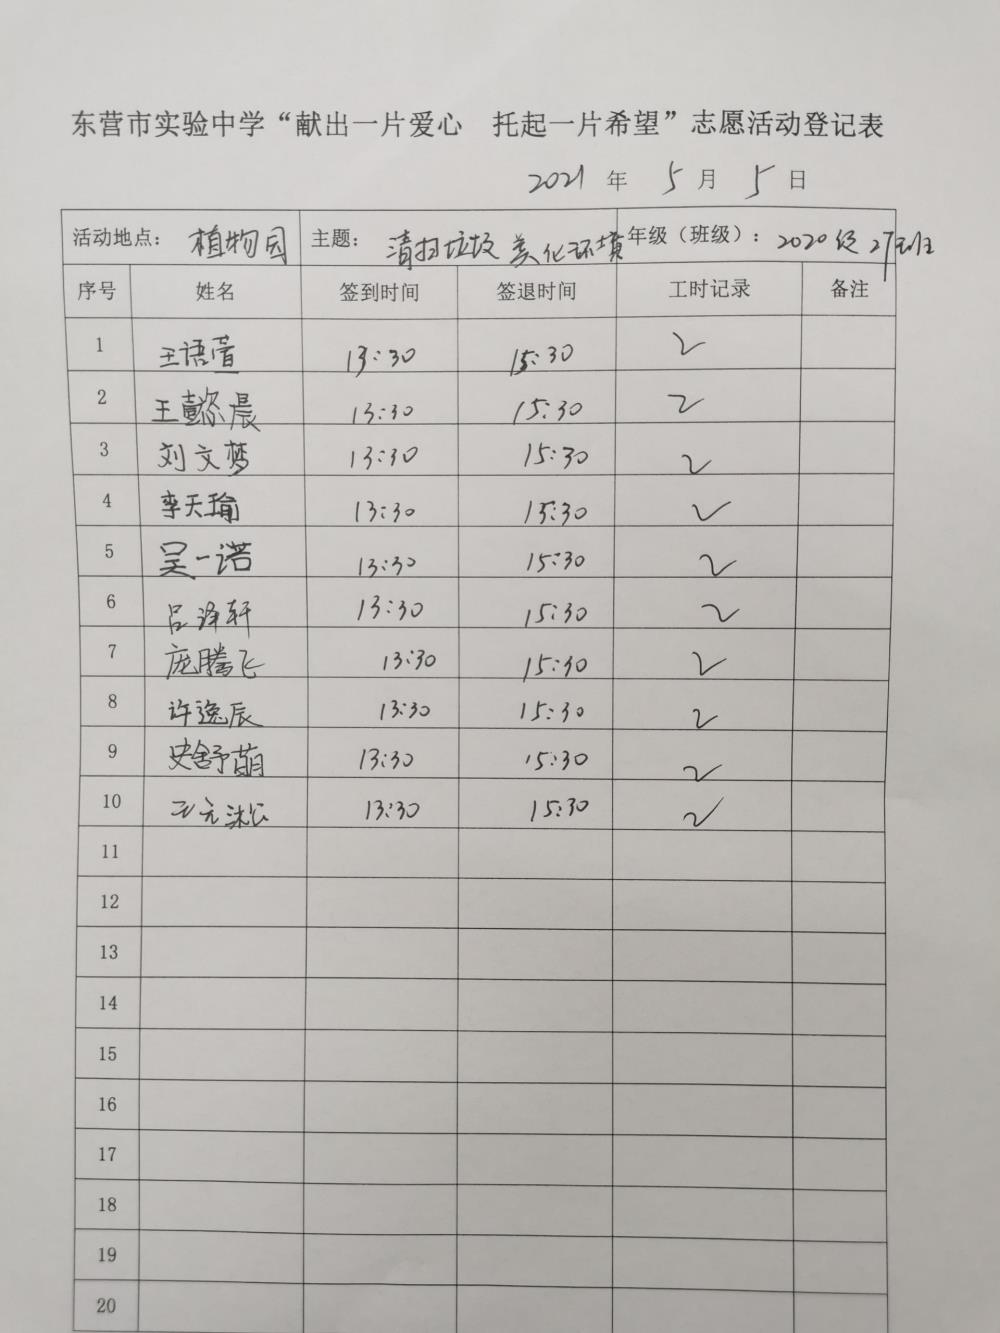 东营市实验中学“献出一片爱心 托起一片希望”志愿活动登记表
2021 年 5 月 5 日
活动地点: 植物园 主题: 清扫垃圾 美化环境 年级（班级）: 2020级27班
序号 姓名 签到时间 签退时间 工时记录 备注
1 王语萱 13:30 15:30 ✓
2 王懿宸晨 13:30 15:30 ✓
3 刘文梦 13:30 15:30 ✓
4 李天瑜 13:30 15:30 ✓
5 吴一诺 13:30 15:30 ✓
6 吕泽轩 13:30 15:30 ✓
7 庞腾飞 13:30 15:30 ✓
8 许逸辰 13:30 15:30 ✓
9 史舒萌 13:30 15:30 ✓
10 13:30 15:30 ✓
11
12
13
14
15
16
17
18
19
20